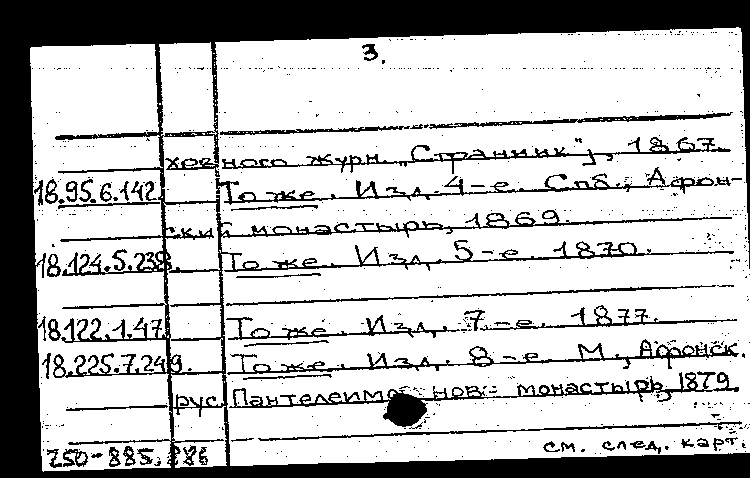 3.
ховного журн. „Странник"], 1867.
18.95.6.142. То же. Изд. 4-е. Спб., Афон-
ский монастырь, 1869.
18.124.5.238. То же. Изд. 5-е. 1870.
18.122.1.47. То же. Изд. 7-е. 1877.
18.225.7.249. То же. Изд. 8-е. М., Афонск.
рус. Пантелеимо нов монастырь, 1879.
250-885,886 см. след. карт.